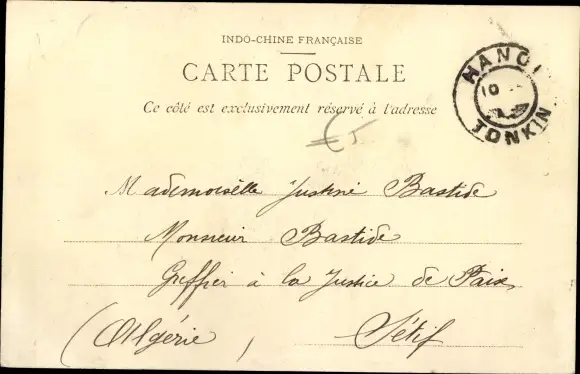 INDO-CHINE FRANÇAISE
CARTE POSTALE
Ce côté est exclusivement réservé à l'adresse
HANOI
10
TONKIN
Mademoiselle Justine Bastide
Monsieur Bastide
Greffier à la Justice de Paix
Sétif
(Algérie)